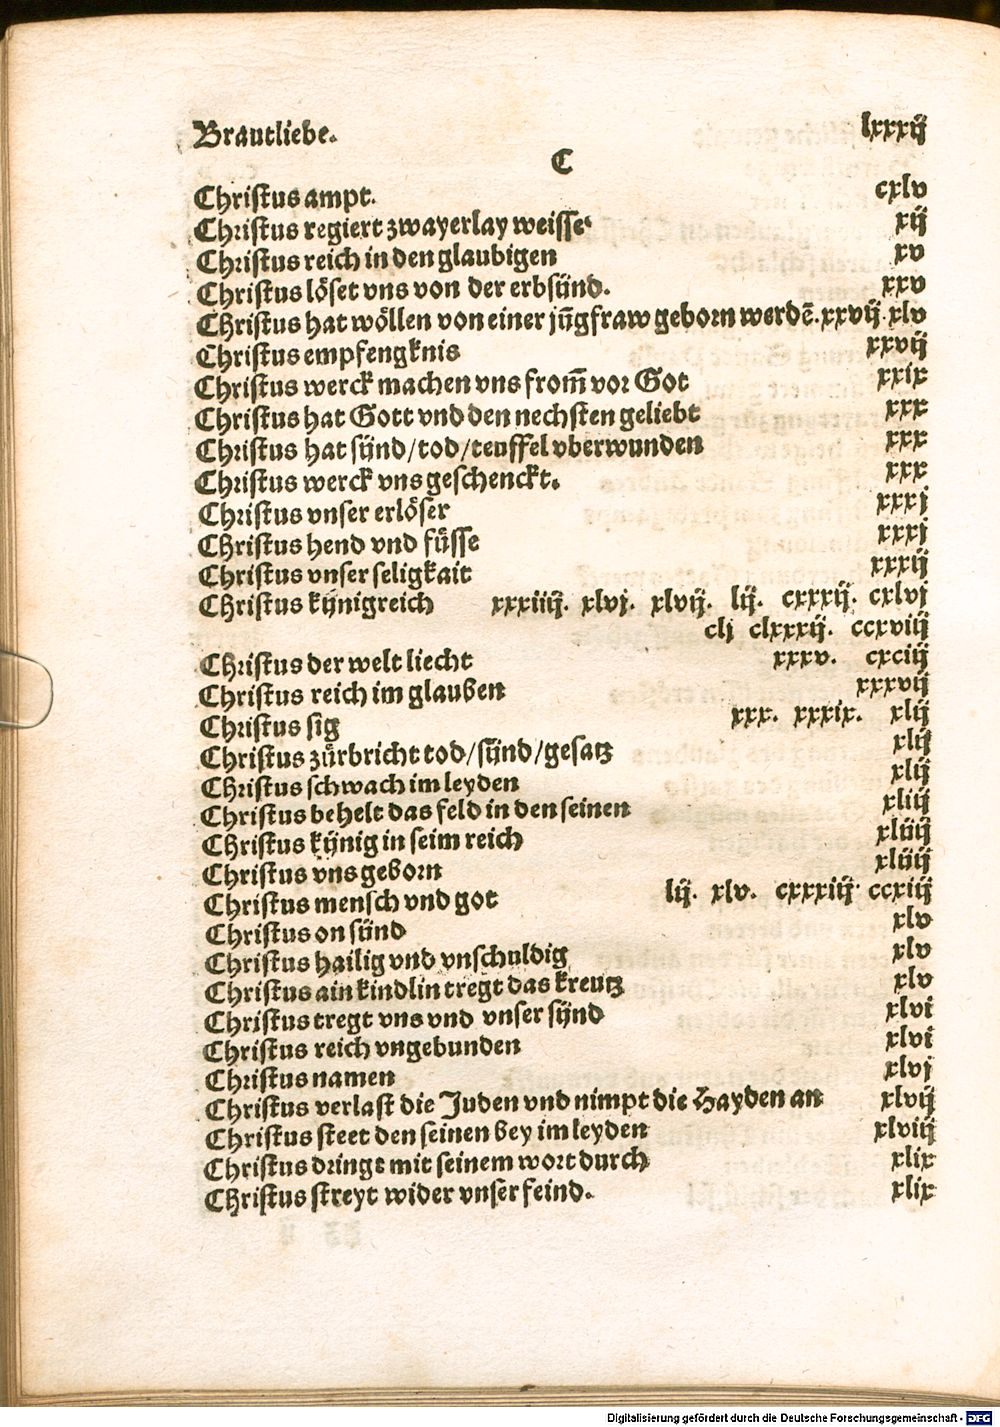 Brautliebe. lxxxij
C
Christus ampt. cxlv
Christus regiert zwayerlay weisse xij
Christus reich in den glaubigen xv
Christus löset vns von der erbsünd. xxv
Christus hat wöllen von einer jūgfraw geborn werdē. xxvij xlv
Christus empfengknis xxvij
Christus werck machen vns from̄ vor Got xxix
Christus hat Gott vnd den nechsten geliebt xxx
Christus hat sünd/tod/teuffel vberwunden xxx
Christus werck vns geschenckt. xxx
Christus vnser erlöser xxxj
Christus hend vnd füsse xxxj
Christus vnser seligkait xxxij
Christus künigreich xxxiiij. xlvj. xlvij. lij. cxxxij. cxlvj
clj clxxxij. ccxviij
Christus der welt liecht xxxv. cxciij
Christus reich im glauben xxxvij
Christus sig xxx. xxxix. xlij
Christus zürbricht tod/sünd/gesatz xlij
Christus schwach im leyden xlij
Christus behelt das feld in den seinen xliij
Christus künig in seim reich xliiij
Christus vns geborn xliiij
Christus mensch vnd got lij. xlv. cxxxiij ccxiij
Christus on sünd xlv
Christus hailig vnd vnschuldig xlv
Christus ain kindlin tregt das kreutz xlv
Christus tregt vns vnd vnser sünd xlvi
Christus reich vngebunden xlvi
Christus namen xlvj
Christus verlast die Juden vnd nimpt die Hayden an xlvij
Christus steet den seinen bey im leyden xlviij
Christus dringt mit seinem wort durch xlix
Christus streyt wider vnser feind. xlix
Digitalisierung gefördert durch die Deutsche Forschungsgemeinschaft - DFG